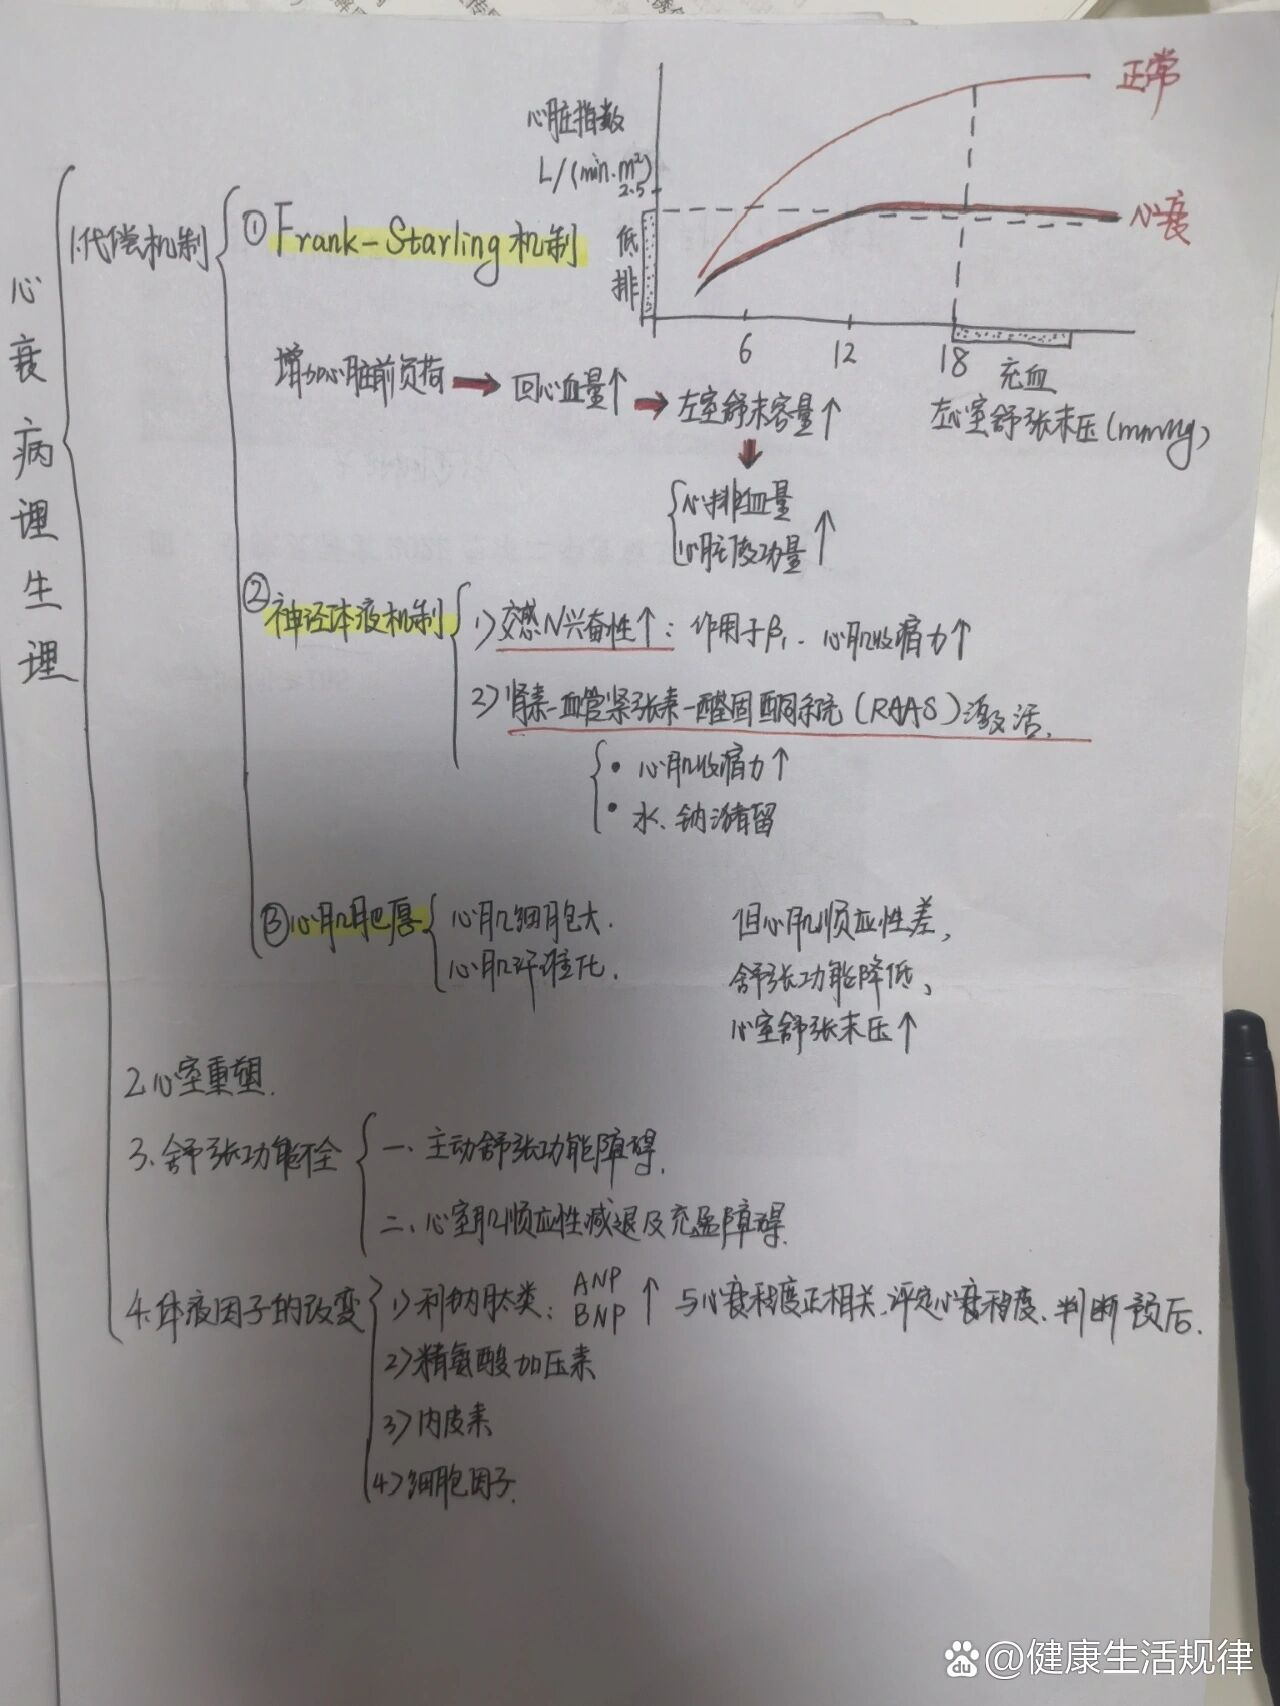 心衰病理生理
1.代偿机制
① Frank-Starling机制
心脏指数
L/(min·m²)
2.5
低排
正常
心衰
6 12 18 充血
左心室舒张末压(mmHg)
增加心脏前负荷→回心血量↑→左室舒末容量↑
↓
心排血量
心脏做功量↑
②神经体液机制
1)交感N兴奋性↑：作用于β₁. 心肌收缩力↑
2)肾素-血管紧张素-醛固酮系统(RAAS)激活.
• 心肌收缩力↑
• 水、钠潴留
③心肌肥厚
心肌细胞大.
心肌纤维化.
但心肌顺应性差,
舒张功能降低、
心室舒张末压↑
2.心室重塑.
3、舒张功能不全
一、主动舒张功能障碍.
二、心室肌顺应性减退及充盈障碍.
4.体液因子的改变
1)利钠肽类：ANP BNP↑ 与心衰程度正相关、评定心衰程度、判断预后.
2)精氨酸加压素
3)内皮素
4)细胞因子.
@健康生活规律